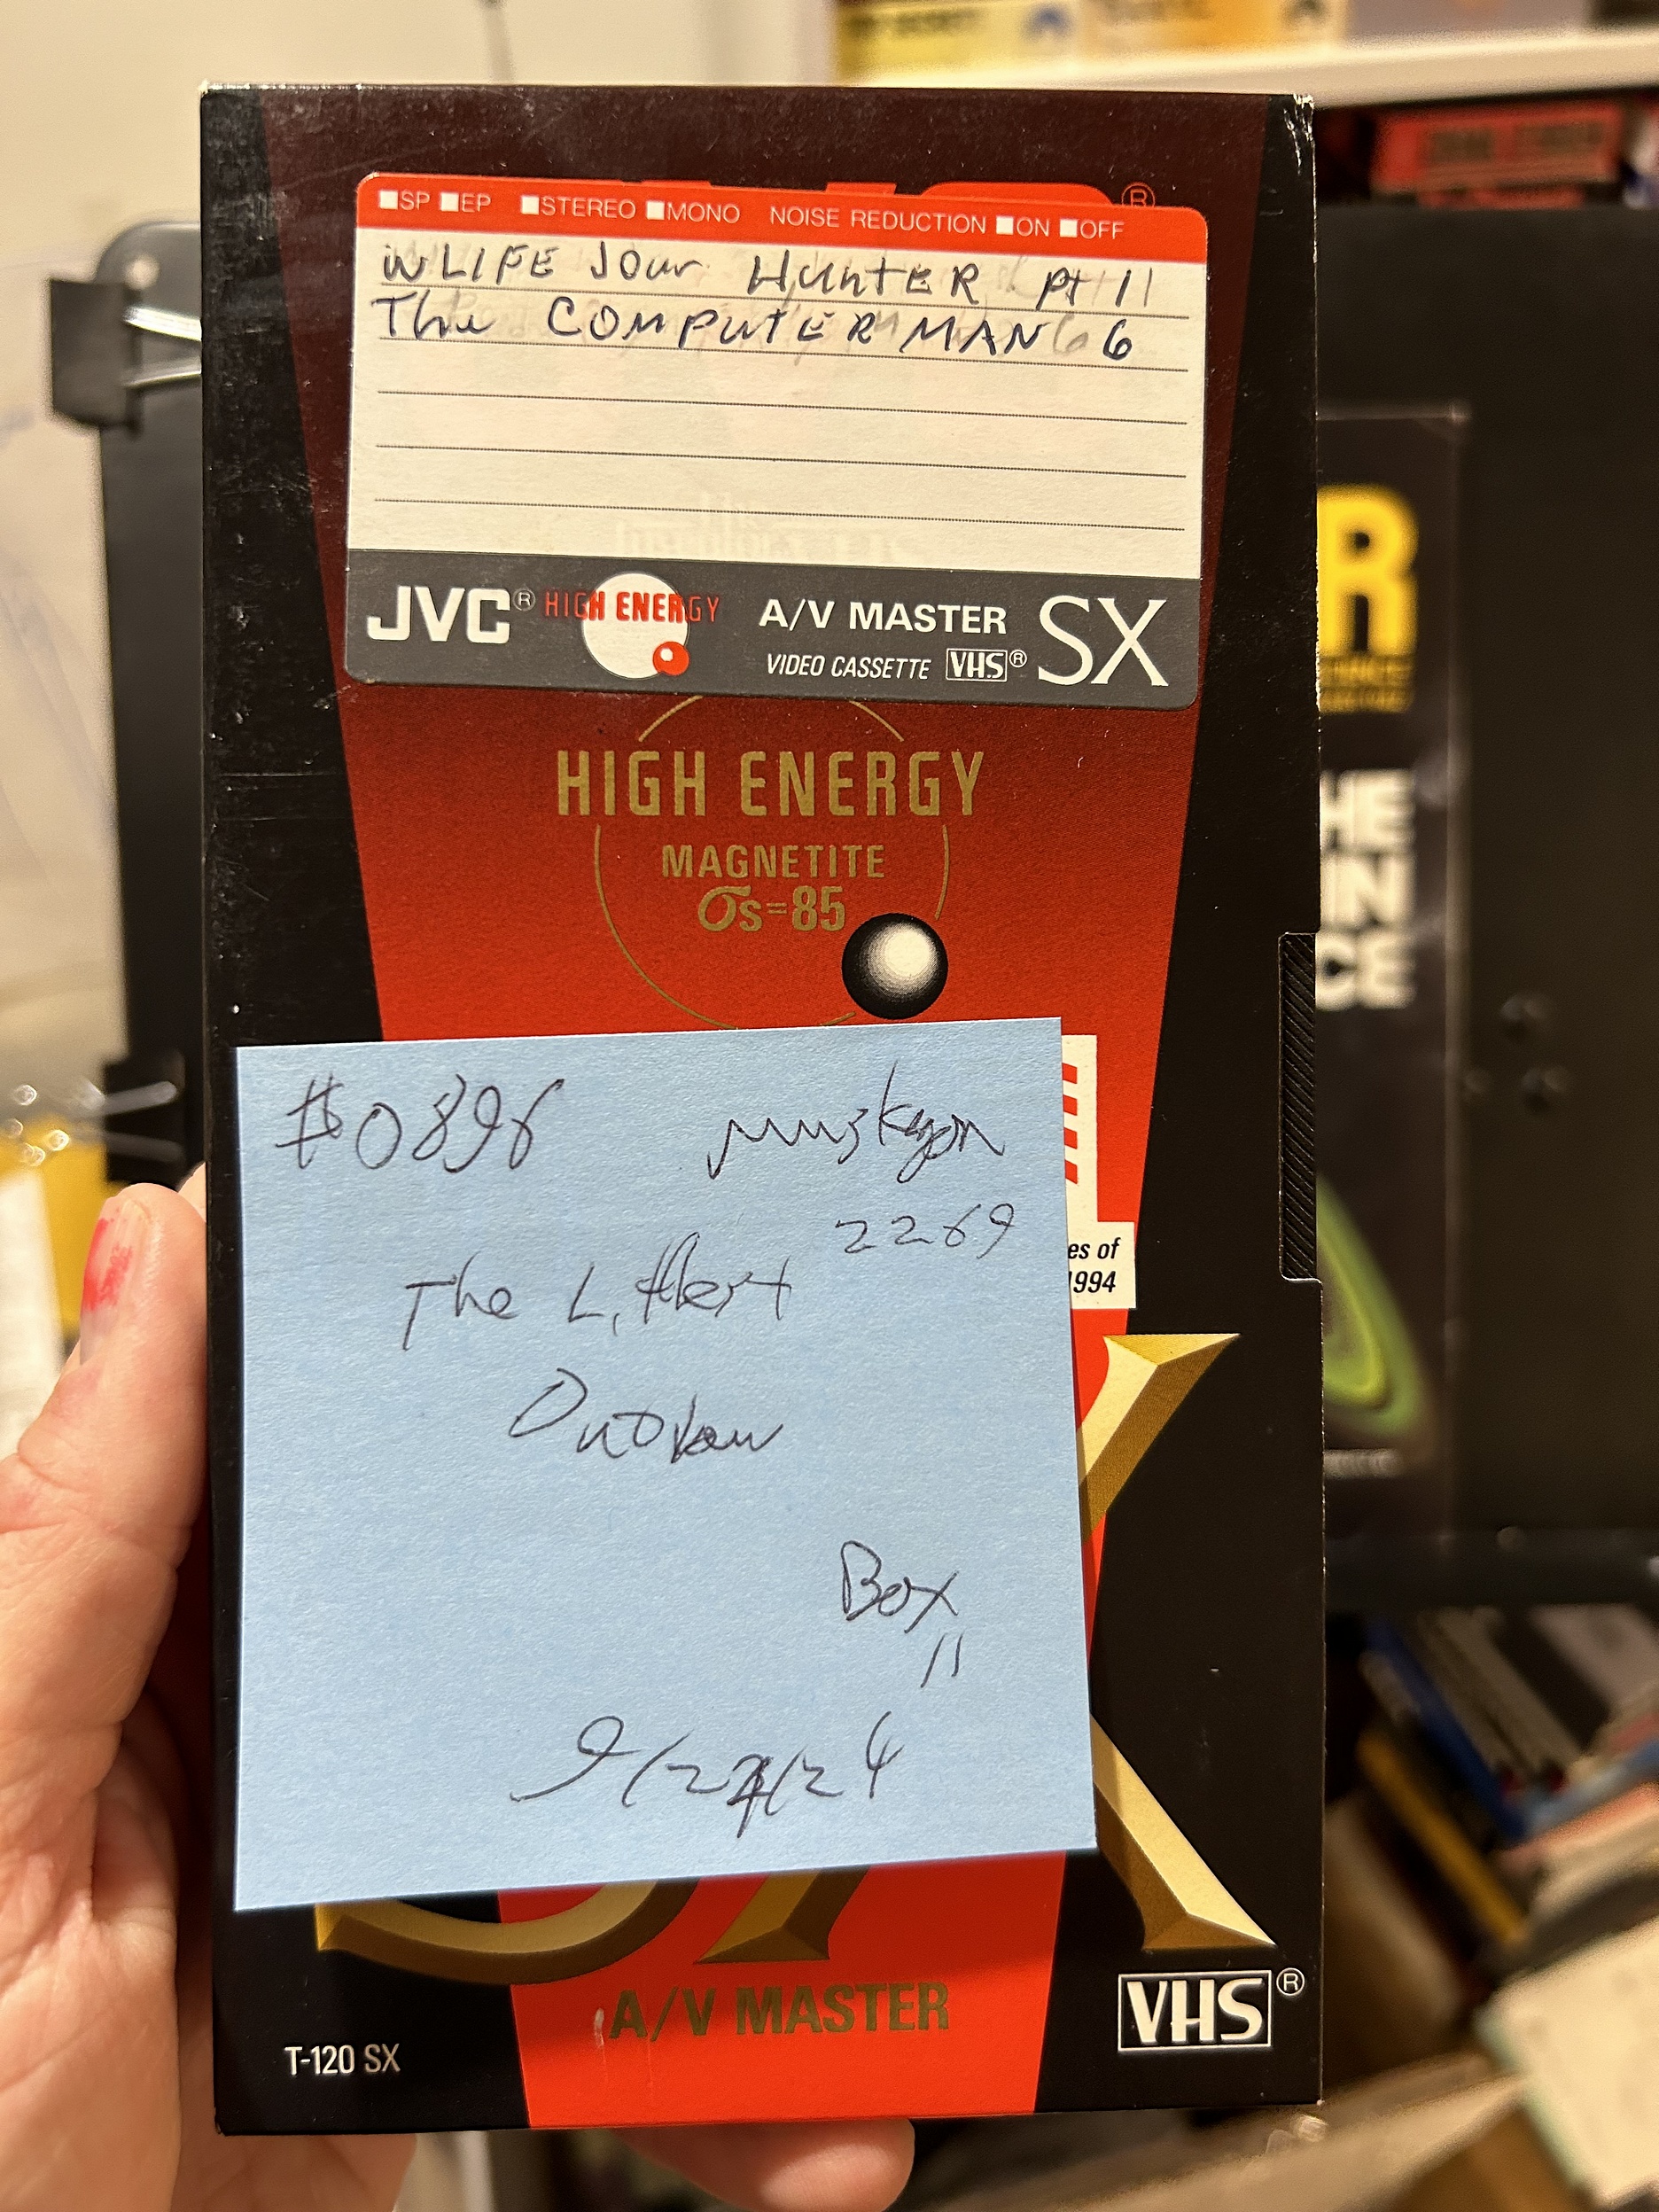 ■SP ■EP ■STEREO ■MONO NOISE REDUCTION ■ON ■OFF
®
WLIFE Jour HUntER pt 11
The COMPUTER MAN 6
JVC® HIGH ENERGY A/V MASTER SX
VIDEO CASSETTE VHS®
HIGH ENERGY
MAGNETITE
σs=85
#0896 Muskegon
2269
The Littlest
Outlaw
es of
1994
Box
11
A/V MASTER
T-120 SX
VHS®
R
HE
IN
CE